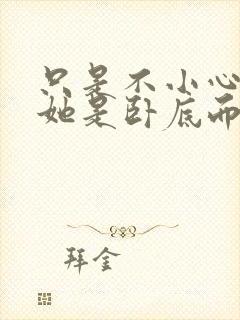 只是不小心
她是卧底而
拜金